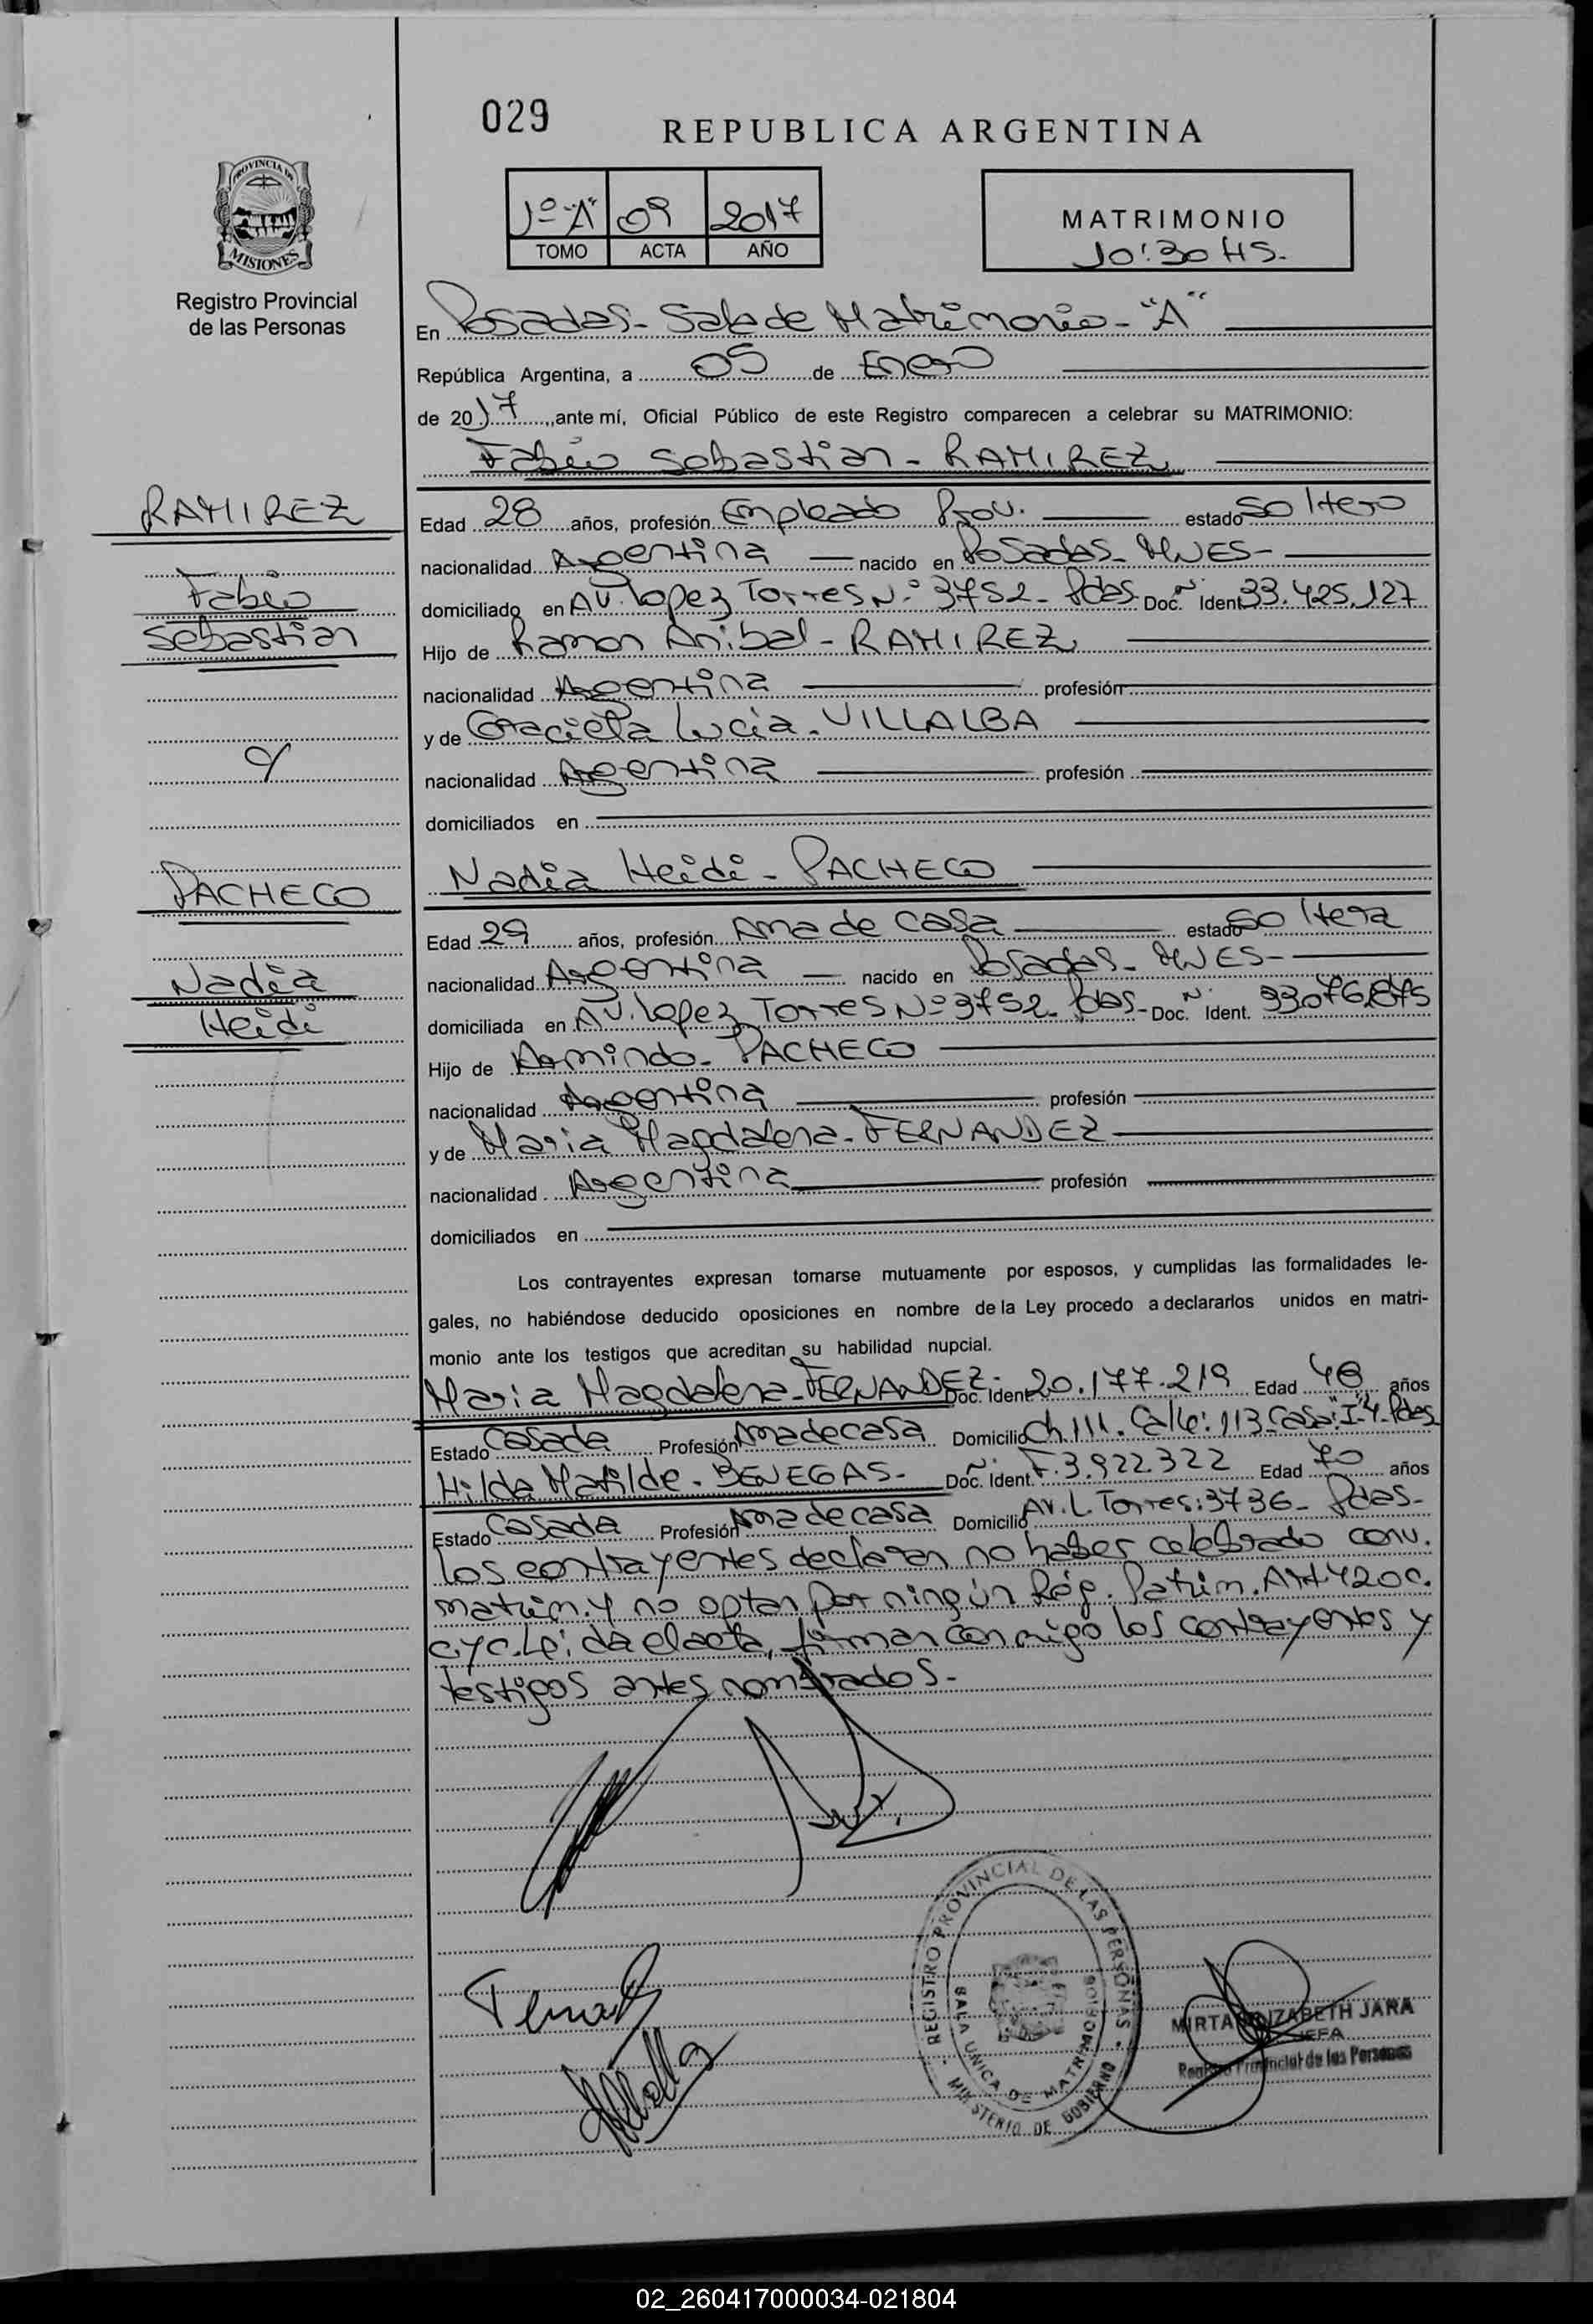 029
REPUBLICA ARGENTINA
1º "A" 09 2017
TOMO ACTA AÑO
MATRIMONIO
10:30 HS.
PROVINCIA DE
MISIONES
Registro Provincial
de las Personas
En Posadas - Sala de Matrimonio - "A"
República Argentina, a 05 de Enero
de 2017, ante mí, Oficial Público de este Registro comparecen a celebrar su MATRIMONIO:
Fabio Sebastian - RAMIREZ
RAMIREZ
Fabio
Sebastian
y
PACHECO
Nadia
Heidi
Edad 28 años, profesión Empleado Prov. estado Soltero
nacionalidad Argentina nacido en Posadas - MNES -
domiciliado en AV. Lopez Torres Nº 3752 - Pdas - Doc. Nº Ident. 33.425.127
Hijo de Ramon Anibal - RAMIREZ
nacionalidad Argentina profesión
y de Graciela Lucia - VILLALBA
nacionalidad Argentina profesión
domiciliados en
Nadia Heidi - PACHECO
Edad 29 años, profesión Ama de casa estado Soltera
nacionalidad Argentina nacido en Posadas - MNES -
domiciliada en AV. Lopez Torres Nº 3752 - Pdas - Doc. Nº Ident. 33.076.875
Hijo de Armindo - PACHECO
nacionalidad Argentina profesión
y de Maria Magdalena - FERNANDEZ
nacionalidad Argentina profesión
domiciliados en
Los contrayentes expresan tomarse mutuamente por esposos, y cumplidas las formalidades le-
gales, no habiéndose deducido oposiciones en nombre de la Ley procedo a declararlos unidos en matri-
monio ante los testigos que acreditan su habilidad nupcial.
Maria Magdalena - FERNANDEZ - Doc. Ident. 20.177.219 Edad 48 años
Estado Casada Profesión Ama de casa Domicilio Ch. 111. Calle: 113 - Casa: "I" 4 - Pdas
Hilda Matilde - BENEGAS - Doc. Ident. F. 3.922.322 Edad 70 años
Estado Casada Profesión Ama de casa Domicilio Av. L. Torres: 3736 - Pdas -
Los contrayentes declaran no haber celebrado conv.
matrim. y no optan por ningún Rég. Patrim. Art 420 C.
C y C. Leída el acta, firman conmigo los contrayentes y
testigos antes nombrados -
REGISTRO PROVINCIAL DE LAS PERSONAS
SALA UNICA DE MATRIMONIOS
MINISTERIO DE GOBIERNO
MIRTA ELIZABETH JARA
JEFA
Registro Provincial de las Personas
02_260417000034-021804